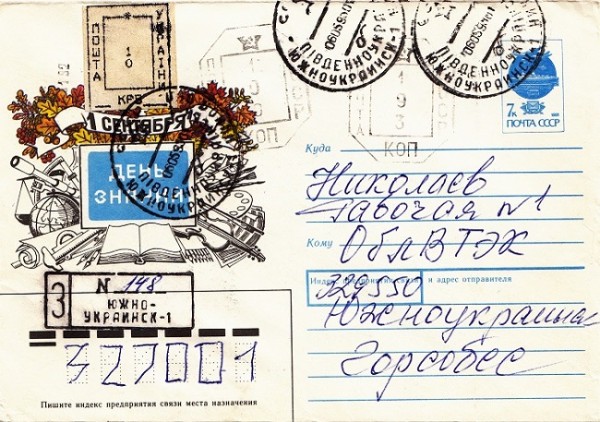 ПОШТА
УКРАЇНИ
10
КРБ
1 СЕНТЯБРЯ
ДЕНЬ
ЗНАНИЙ
ПІВДЕННОУКРА
ЮЖНОУКРАИНСК-1
ПІВДЕННОУКРА
ЮЖНОУКРАИНСК-1
КОП
КОП
7к
ПОЧТА СССР
Куда
Николаев
Рабочая №1
Кому
ОблВТЭК
Индекс и адрес отправителя
329550
Южноукраинск
Горсобес
З
N 148
ЮЖНО-
УКРАИНСК-1
327001
Пишите индекс предприятия связи места назначения